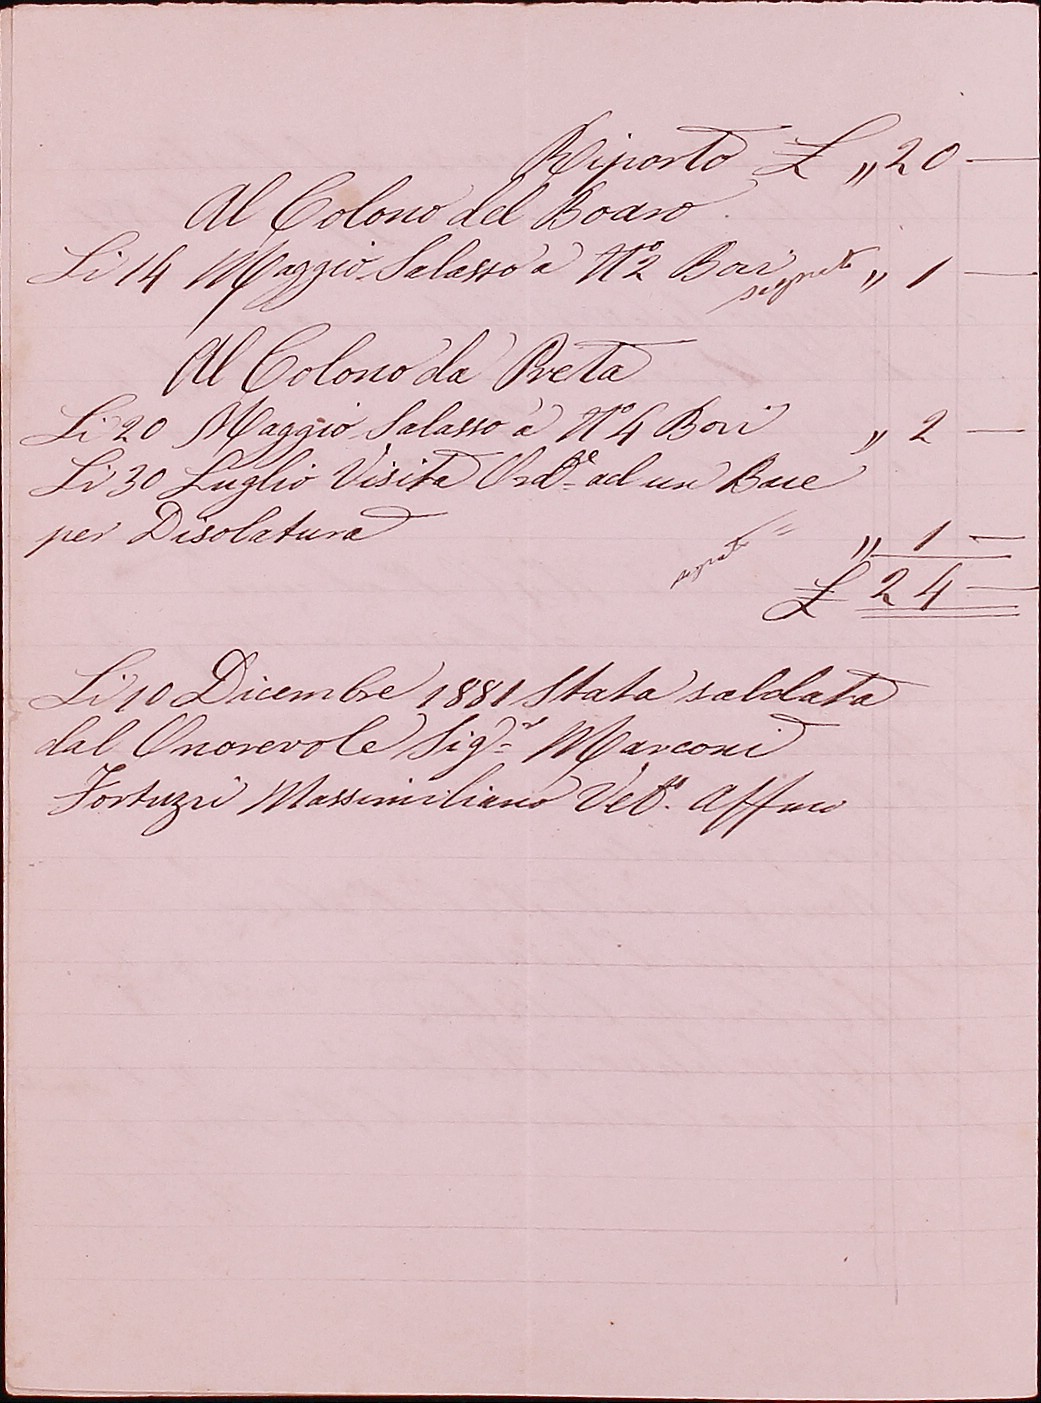 Riporto £ „ 20 —
Al Colono del Boaro
Li 14 Maggio Salasso a N° 2 Bovi segnato „ 1 —
Al Colono da Preta
Li 20 Maggio Salasso a N° 4 Bovi „ 2 —
Li 30 Luglio Visita Ord.e ad un Bue
per Disolatura segnato „ 1 —
£ 24 —
Li 10 Dicembre 1881 Stata saldata
dal Onorevole Sig.r Marconi
Massimiliano Vet.o